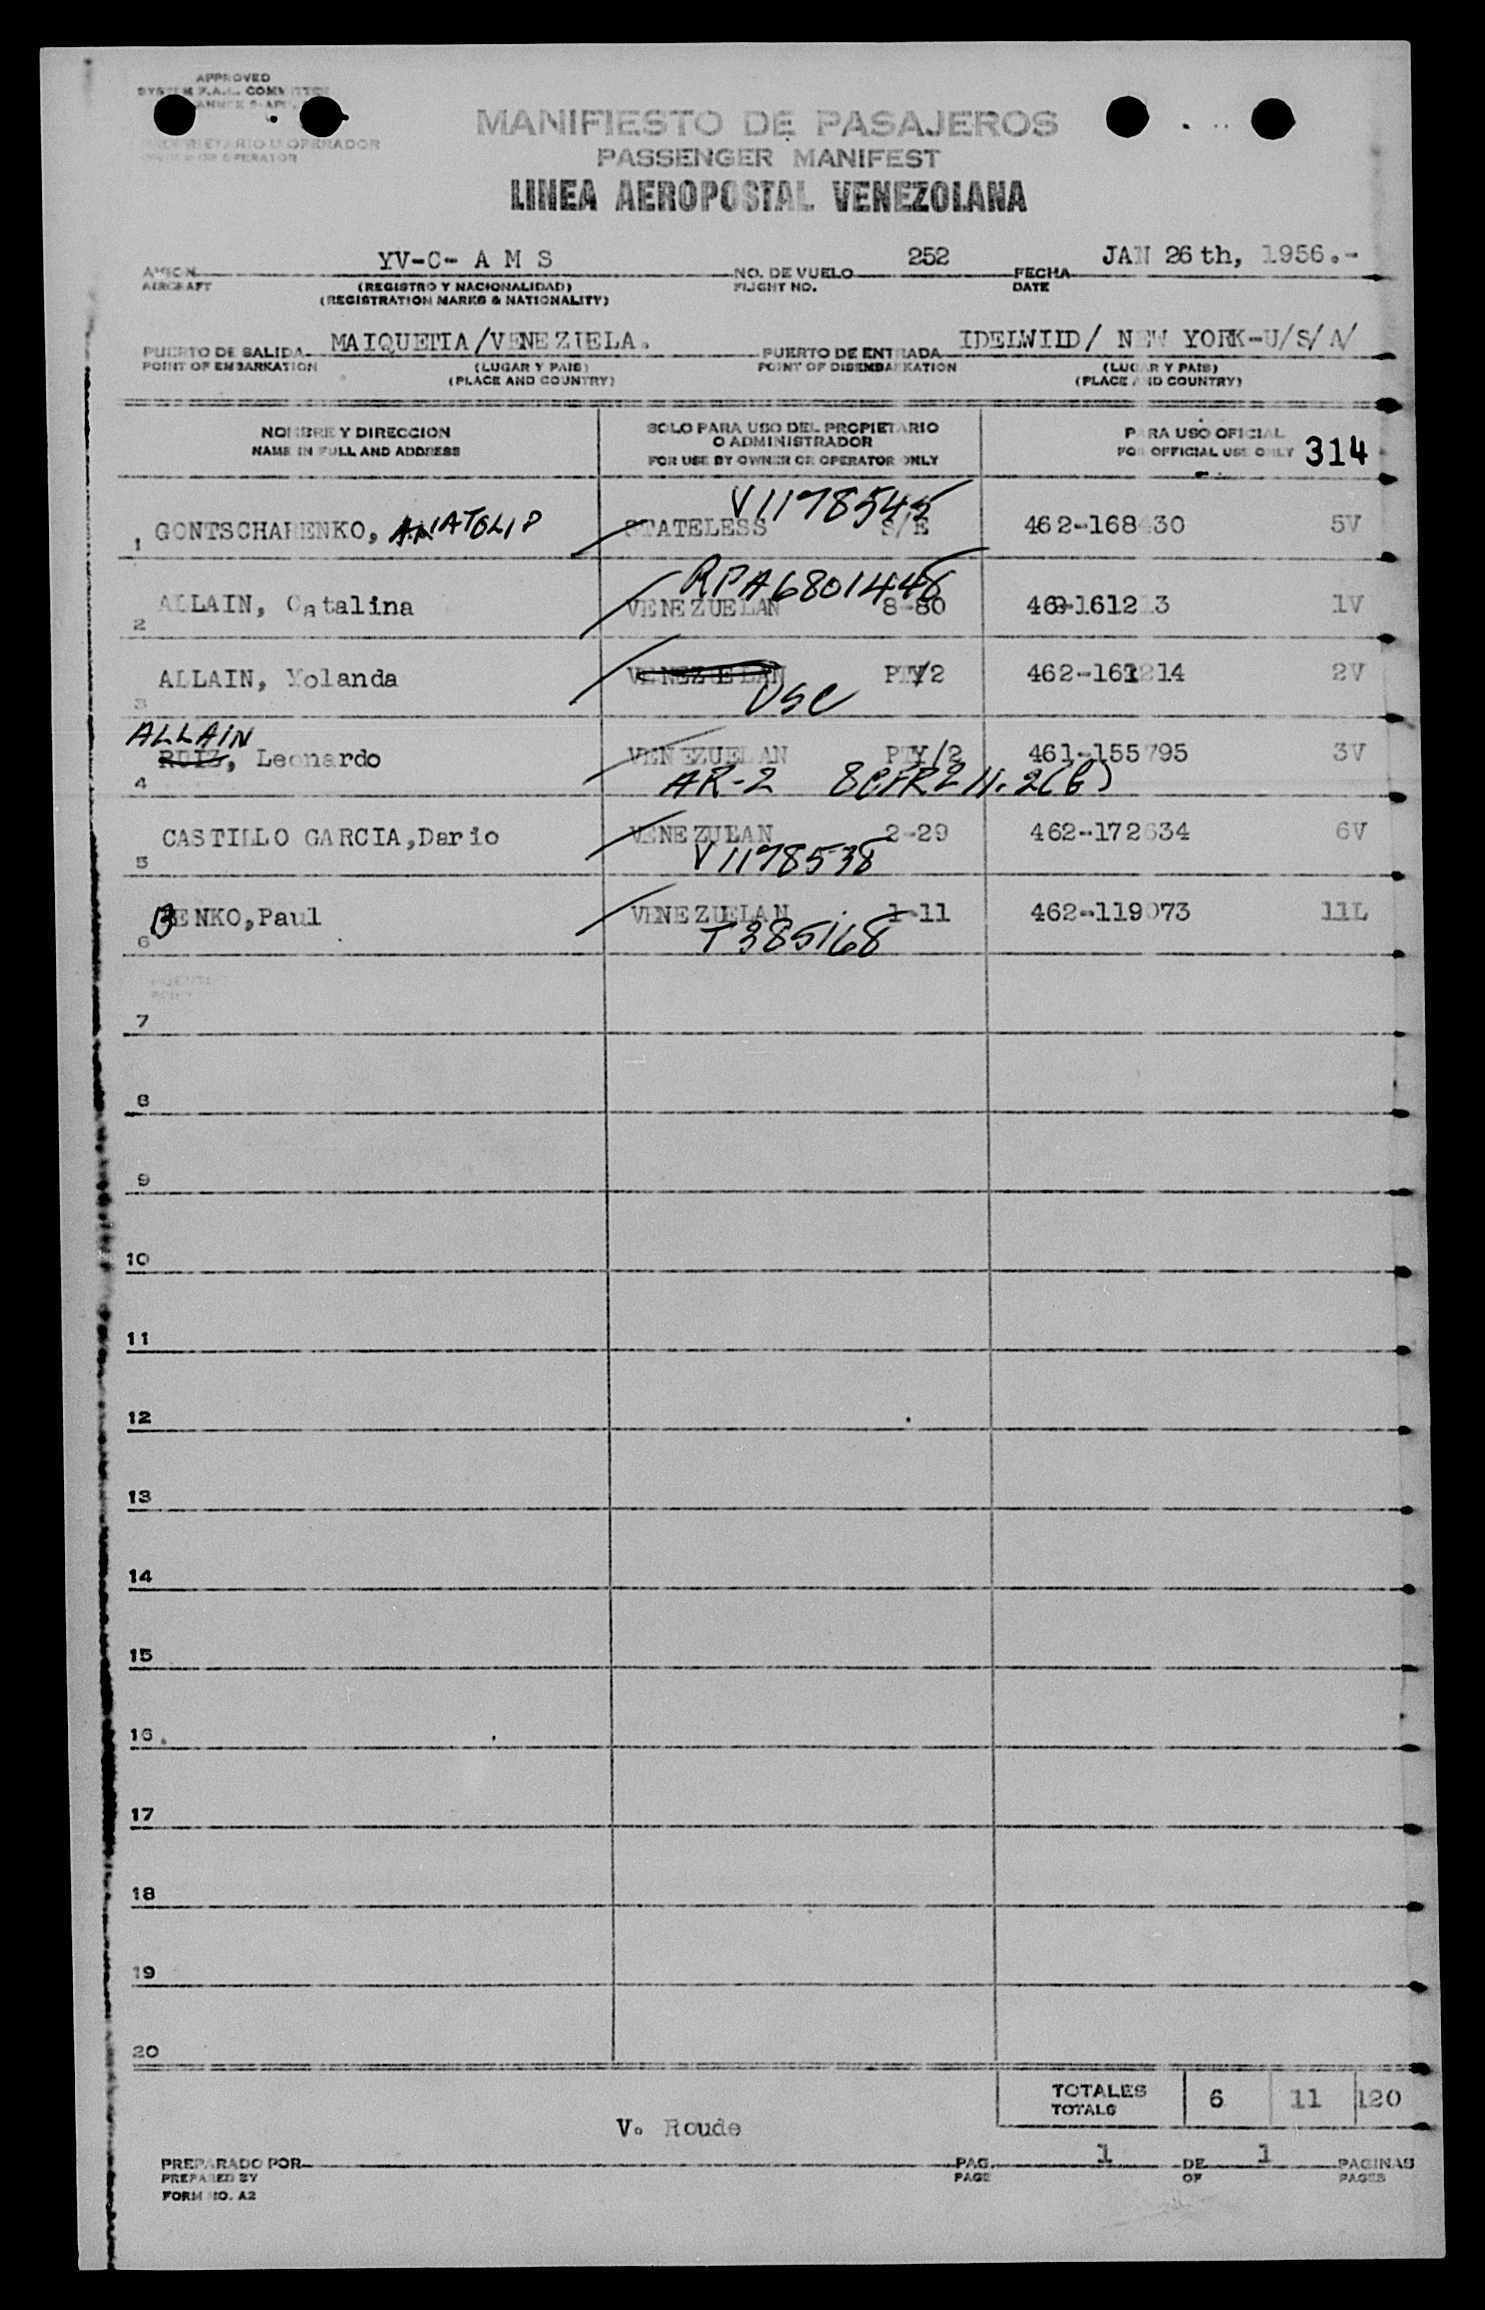 APPROVED
SYSTEM F.A.L. COMMITTEE
ANNEX 9-APP.
PROPIETARIO U OPERADOR
OWNER OR OPERATOR
MANIFIESTO DE PASAJEROS
PASSENGER MANIFEST
LINEA AEROPOSTAL VENEZOLANA
AVION YV-C- A M S NO. DE VUELO 252 FECHA JAN 26th, 1956.-
AIRCRAFT (REGISTRO Y NACIONALIDAD) FLIGHT NO. DATE
(REGISTRATION MARKS & NATIONALITY)
PUERTO DE SALIDA MAIQUETIA/VENEZUELA. PUERTO DE ENTRADA IDELWILD/ NEW YORK-U/S/A/
POINT OF EMBARKATION (LUGAR Y PAIS) POINT OF DISEMBARKATION (LUGAR Y PAIS)
(PLACE AND COUNTRY) (PLACE AND COUNTRY)
NOMBRE Y DIRECCION SOLO PARA USO DEL PROPIETARIO PARA USO OFICIAL
O ADMINISTRADOR
NAME IN FULL AND ADDRESS FOR USE BY OWNER OR OPERATOR ONLY FOR OFFICIAL USE ONLY 314
V1178545
1 GONTSCHARENKO, ANATOLIP STATELESS S/E 462-168430 5V
RPA6801448
2 ALLAIN, Catalina VENEZUELAN 8-80 462-161213 1V
3 ALLAIN, Yolanda VENEZUELAN PTY/2 462-161214 2V
USC
ALLAIN
4 RUIZ, Leonardo VENEZUELAN PTY/2 461-155795 3V
AR-2 8CFR211.2(b)
5 CASTILLO GARCIA,Dario VENEZULAN 2-29 462-172634 6V
V1178538
6 BENKO,Paul VENEZUELAN 1-11 462-119073 11L
T385168
7
8
9
10
11
12
13
14
15
16
17
18
19
20
TOTALES 6 11 120
TOTALS
V. Roude
PREPARADO POR PAG. 1 DE 1 PAGINAS
PREPARED BY PAGE OF PAGES
FORM NO. A2